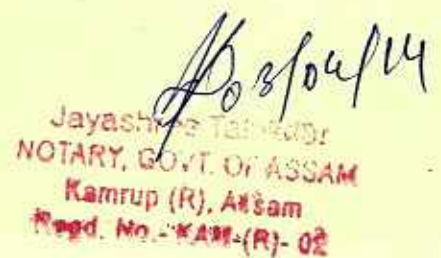 03/04/14
Jayashree Talukdar
NOTARY, GOVT. OF ASSAM
Kamrup (R), Assam
Regd. No.- KAM-(R)- 02